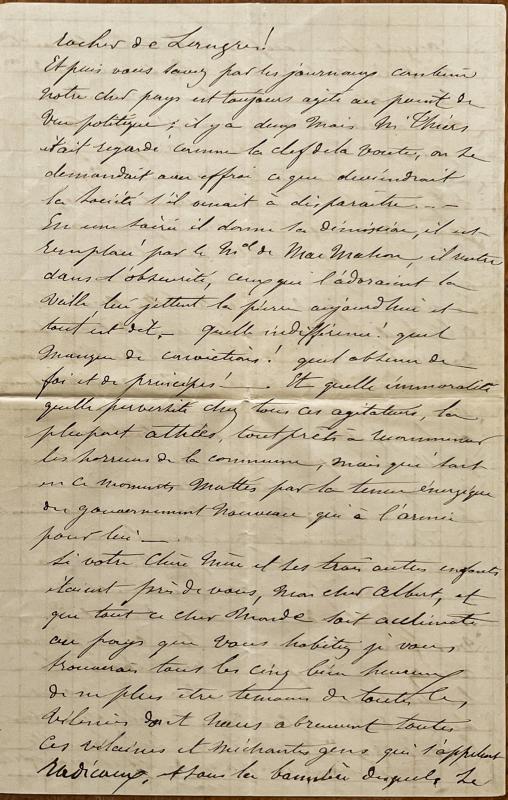 rocher de Langres!
Et puis vous savez par les journaux combien
notre cher pays est toujours agité au point de
vue politique; il y a deux mois Mr Thiers
était regardé comme la clef de la voute, on se
demandait avec effroi ce que deviendrait
la société s'il venait à disparaitre - - -
En une soirée il donne sa démission, il est
remplacé par le Mal de Mac Mahon, il rentre
dans l'obscurité, ceux qui l'adoraient la
veille lui jettent la pierre aujourd'hui et
tout est dit. quelle indifférence! quel
manque de convictions! quel absence de
foi et de principes! - . Et quelle immoralité
quelle perversité chez tous ces agitateurs, la
plupart athées, tout prêts à recommencer
les horreurs de la commune, mais qui sont
en ce moments matés par la tenue énergique
du gouvernement nouveau qui a l'armée
pour lui -
Si votre chère mère et ses trois autres enfants
étaient près de vous, mon cher Albert, et
que tout ce cher monde soit acclimaté
au pays que vous habitez je vous
trouverais tous les cinq bien heureux
de ne plus être témoins de toutes les
vilenies dont nous abreuvent toutes
ces vilaines et méchantes gens qui s'appellent
radicaux, et sous la bannière desquels se